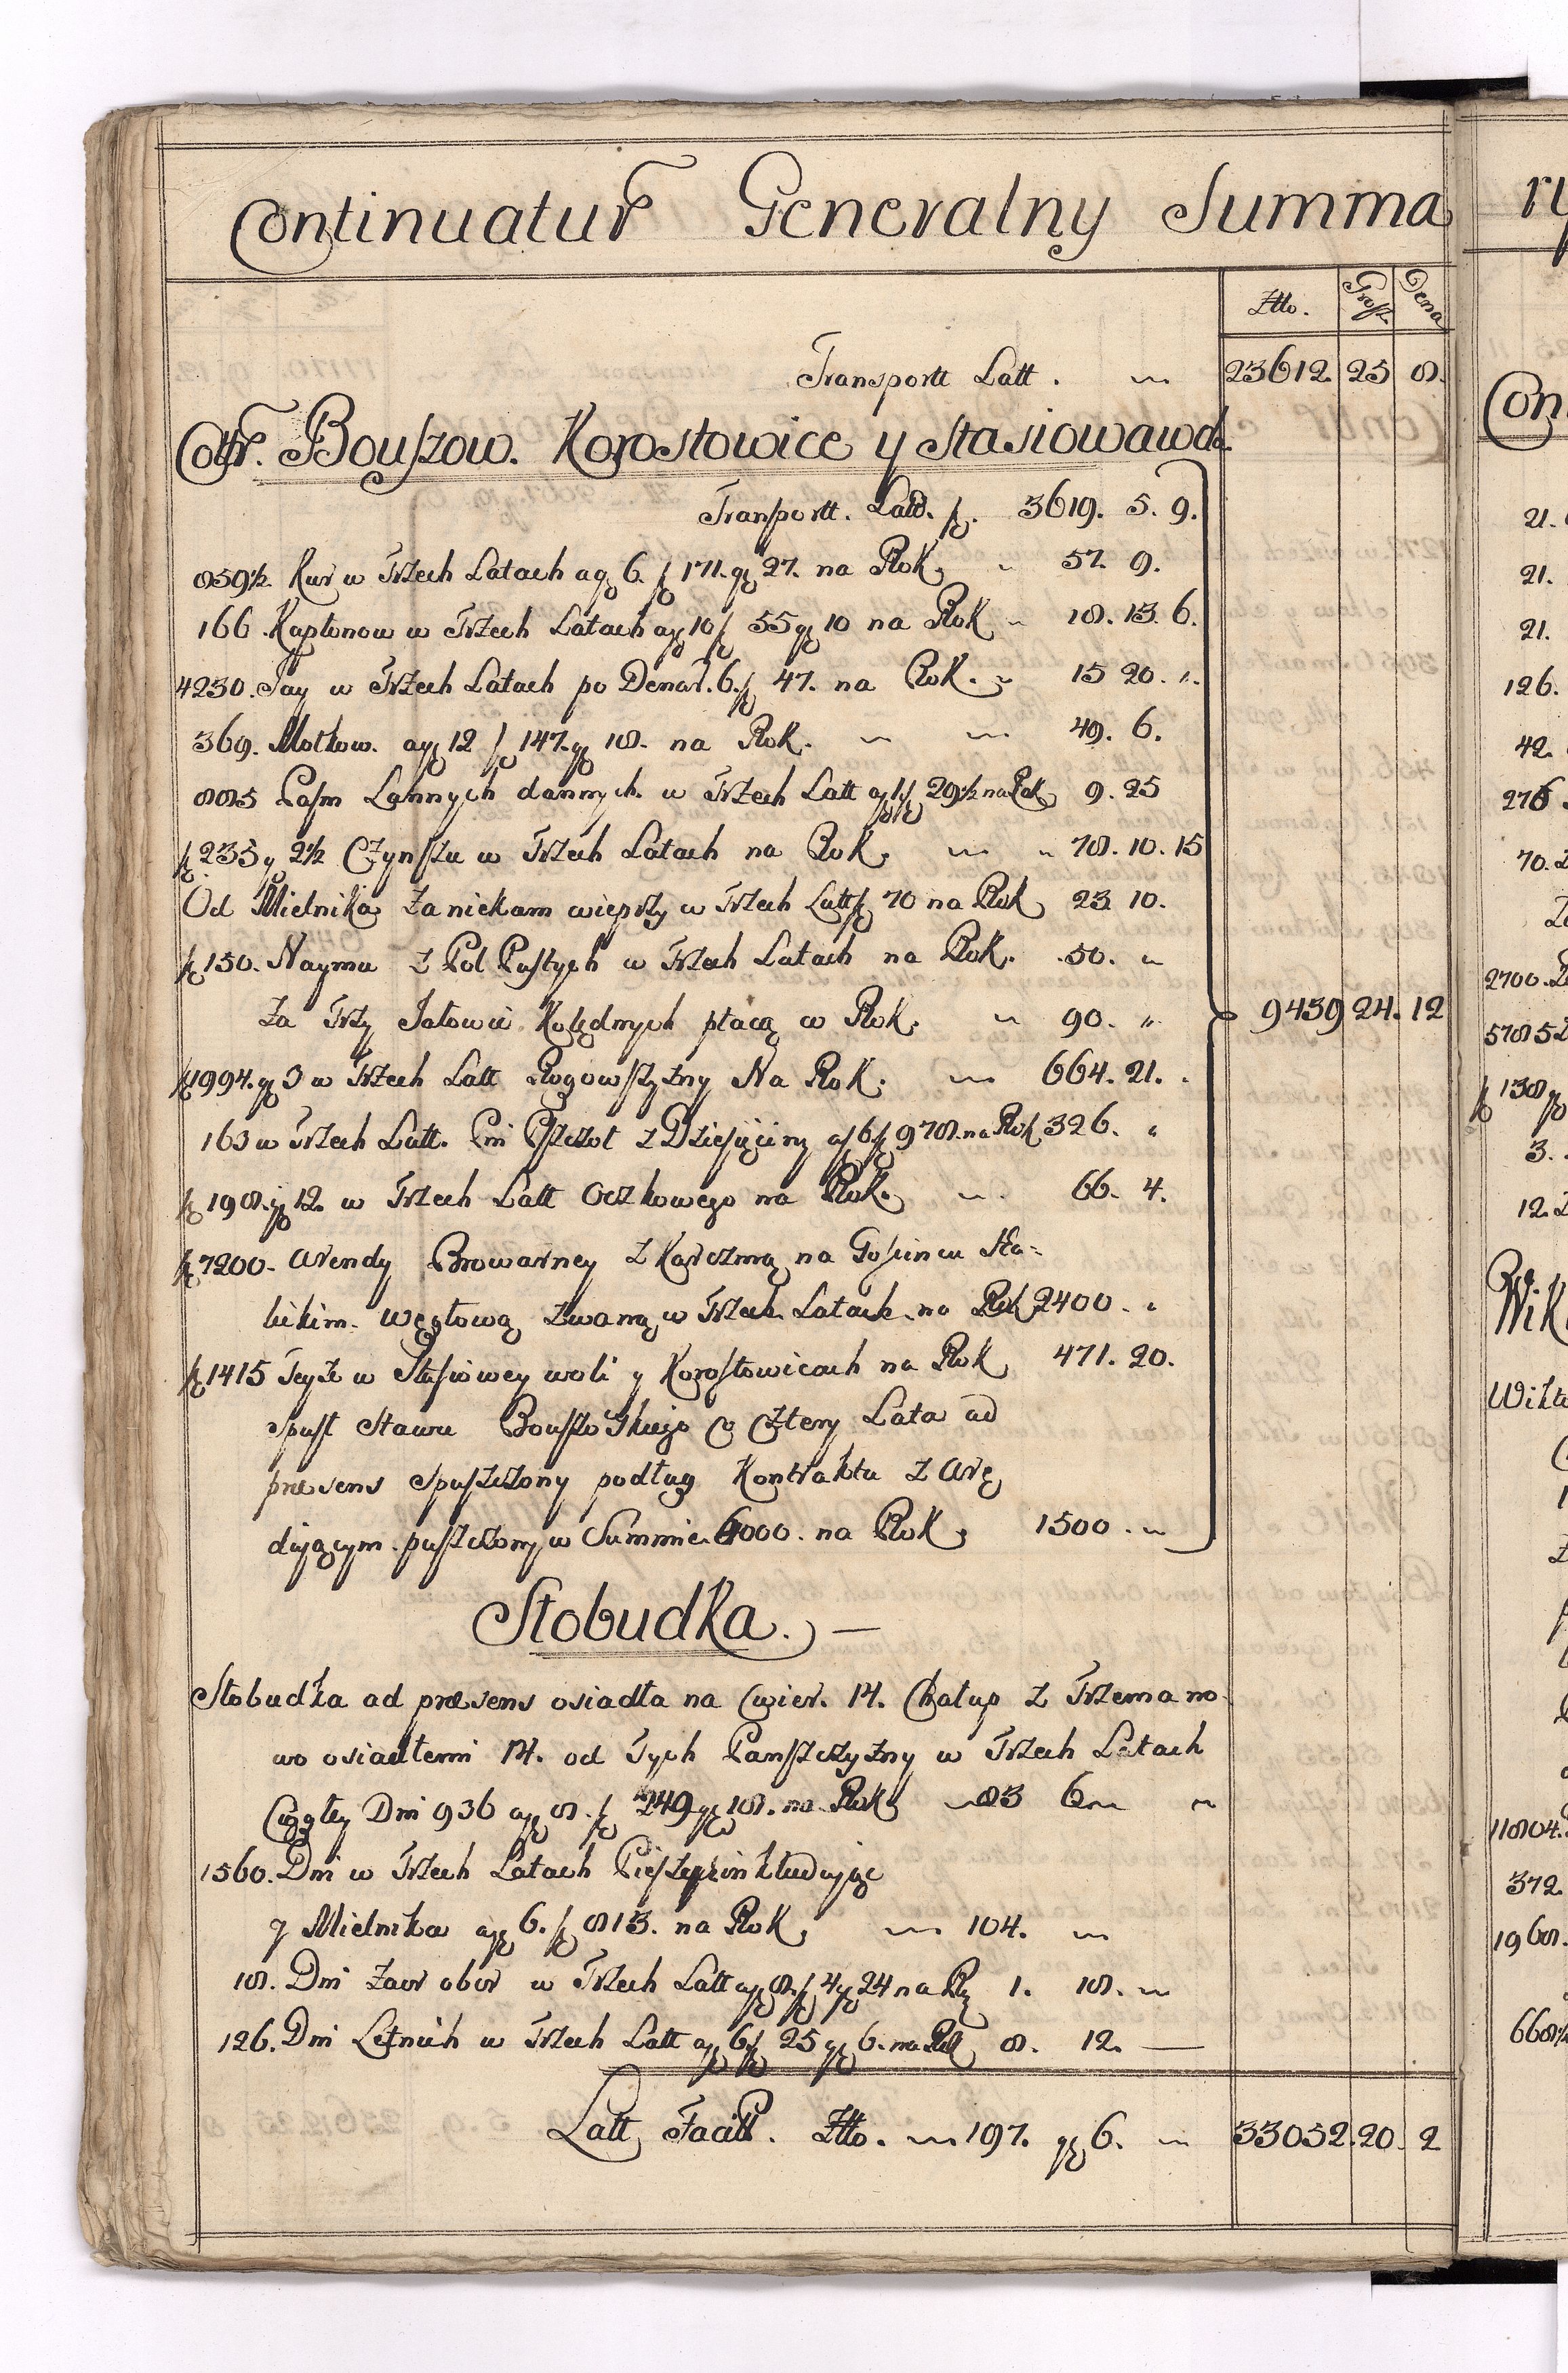 Continuatur Generalny Summa
Złło. Grosz. Dena
Transportt Latt. 23612. 25 8.
Cottr. Bouszow. Korostowice y Stasiowawola
Transportt. Latt. f. 3619. 5. 9.
859½. Kur w Trzech Latach a gr 6. f 171. gr 27. na Rok 57. 9.
166. Kapłonow w Trzech Latach a gr 10 f 55 gr 10 na Rok 18. 13. 6.
4230. Jay w Trzech Latach po Denar. 6. f 47. na Rok. 15 20. "
369. Motkow. a gr 12 f 147. gr 18. na Rok. 49. 6.
885 Pasm Lannych dannych w Trzech Latt a gr 1 f 29½ na Rok 9. 25
f 235 y 2½ Czynszu w Trzech Latach na Rok 78. 10. 15
Od Mielnika Za wieprzy w Trzech Latt f 70 na Rok 23 10.
f 150. Naymu z Pol Pustych w Trzech Latach na Rok. 50.
Za Trzy Jałowic Kolędnych płacą w Rok. 90. "
f 1994. gr 3 w Trzech Latt Rogowszyzny Na Rok. 664. 21.
163 w Trzech Latt. Pni Pszczoł z Dziesięciny a f 6 f 978. na Rok 326. "
f 198. gr 12. w Trzech Latt Oczkowego na Rok. 66. 4.
f 7200. Arendy Browarney z Karczmą na Gosincu Ha-
lickim. Węgłową zwaną w Trzech Latach na Rok 2400. "
f 1415 Teyże w Stasiowey woli y Korostowicach na Rok 471. 20.
9439 24. 12
Spust Stawu Bouszowskiego Co Cztery Lata ad
præsens Spuszczony podług Kontraktu z Arę
dującym. puszczony w Summie 6000. na Rok 1500.
Słobudka.
Słobudka ad præsens osiadła na Cwier. 14. Chałup z Trzema no
wo osiadłemi 14. od Tych Panszczyzny w Trzech Latach
Ciągłey Dni 936 a gr 8. f 249 gr 18. na Rok 83 6
1560. Dni w Trzech Latach Pieszey inkludując
y Mielnika a gr 6. f 313. na Rok 104.
18. Dni Zaor obor w Trzech Latt a gr 8. f 4 gr 24 na Rok 1. 18.
126. Dni Letnich w Trzech Latt a gr 6 f 25 gr 6. na Rok 8. 12.
Latt Facitt. Złło. 197. gr 6. 33052. 20. 2